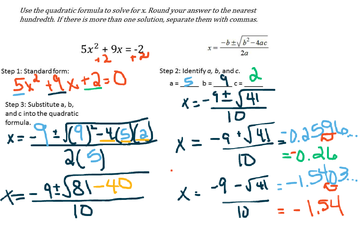 Use the quadratic formula to solve for x. Round your answer to the nearest
hundredth. If there is more than one solution, separate them with commas.
5x² + 9x = -2
+2 +2
x = (-b ± √(b² - 4ac)) / 2a
Step 1: Standard form:
5x² + 9x + 2 = 0
Step 2: Identify a, b, and c.
a = 5 b = 9 c = 2
Step 3: Substitute a, b,
and c into the quadratic
formula.
x = (-9 ± √((9)² - 4(5)(2))) / 2(5)
x = (-9 ± √(81 - 40)) / 10
x = (-9 ± √41) / 10
x = (-9 + √41) / 10 = -0.2596...
= -0.26
x = (-9 - √41) / 10 = -1.5403...
= -1.54